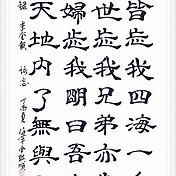 皆忘我四海一
世忘我兄弟亦
婦忘我明日吾
天地內了無與
李奎報 詠忘 丁酉夏